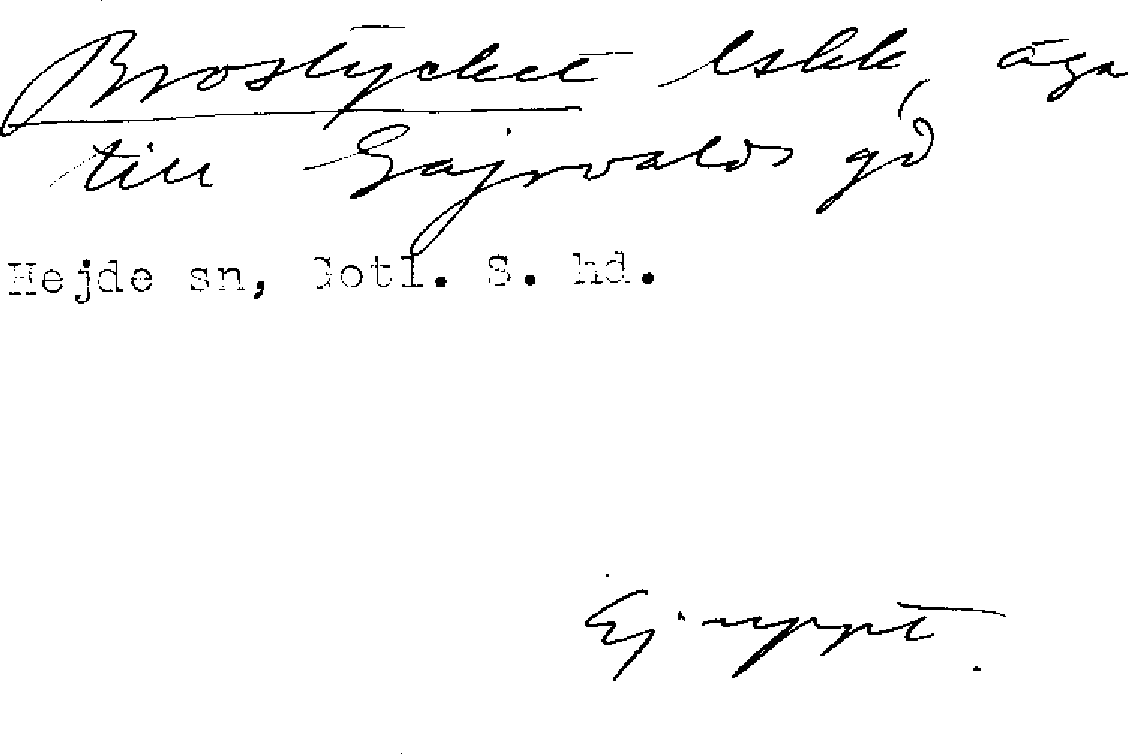 Brostycket lskk, äga
till Gajrvalds gd
Hejde sn, Gotl. S. hd.
Ej uppt.